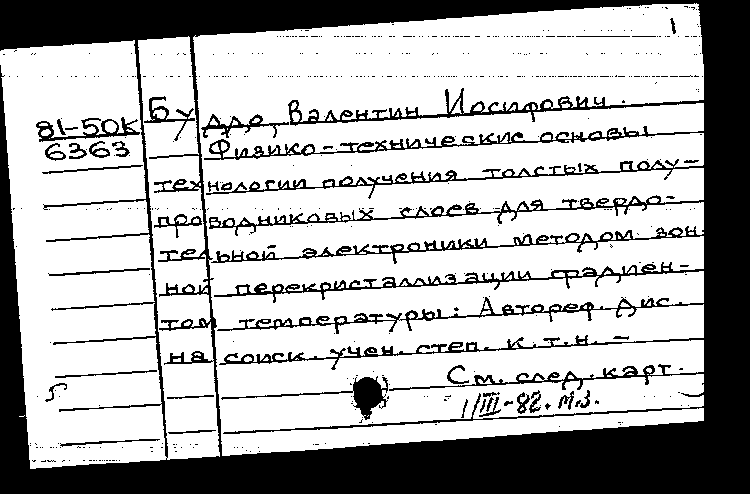 1
81-50к Буддо, Валентин Иосифович.
6363 Физико-технические основы
технологии получения толстых полу-
проводниковых слоев для твердо-
тельной электроники методом зон
ной перекристаллизации градиен-
том температуры: Автореф. дис.
на соиск. учен. степ. к.т.н. –
См. след. карт.
1/III-82. М.З.